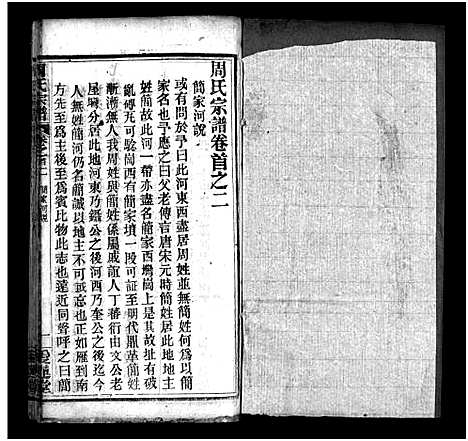 周氏宗譜卷首之二
簡家河說
或有問於予曰此河東西盡居周姓並無簡姓何以簡
家名也予應之曰父老傳言唐宋元時簡姓居此地地主
姓簡故此河一帶亦盡名簡家西灣崗上是其故址有破
亂磚瓦可驗崗西有簡家墳一段可証至明代鼎革簡姓
漸漸無人我周姓與簡姓係屬戚誼人丁蕃衍由文公老
屋塆分居此地河東乃鐇公之後河西乃奎公之後迄今
人無姓簡河仍名簡誠以地主不可忘也正如雁到南
方先至為主後至為賓比物此志也遠近同聲呼之曰簡
周氏宗譜
卷首二
簡家河說
一
愛蓮堂